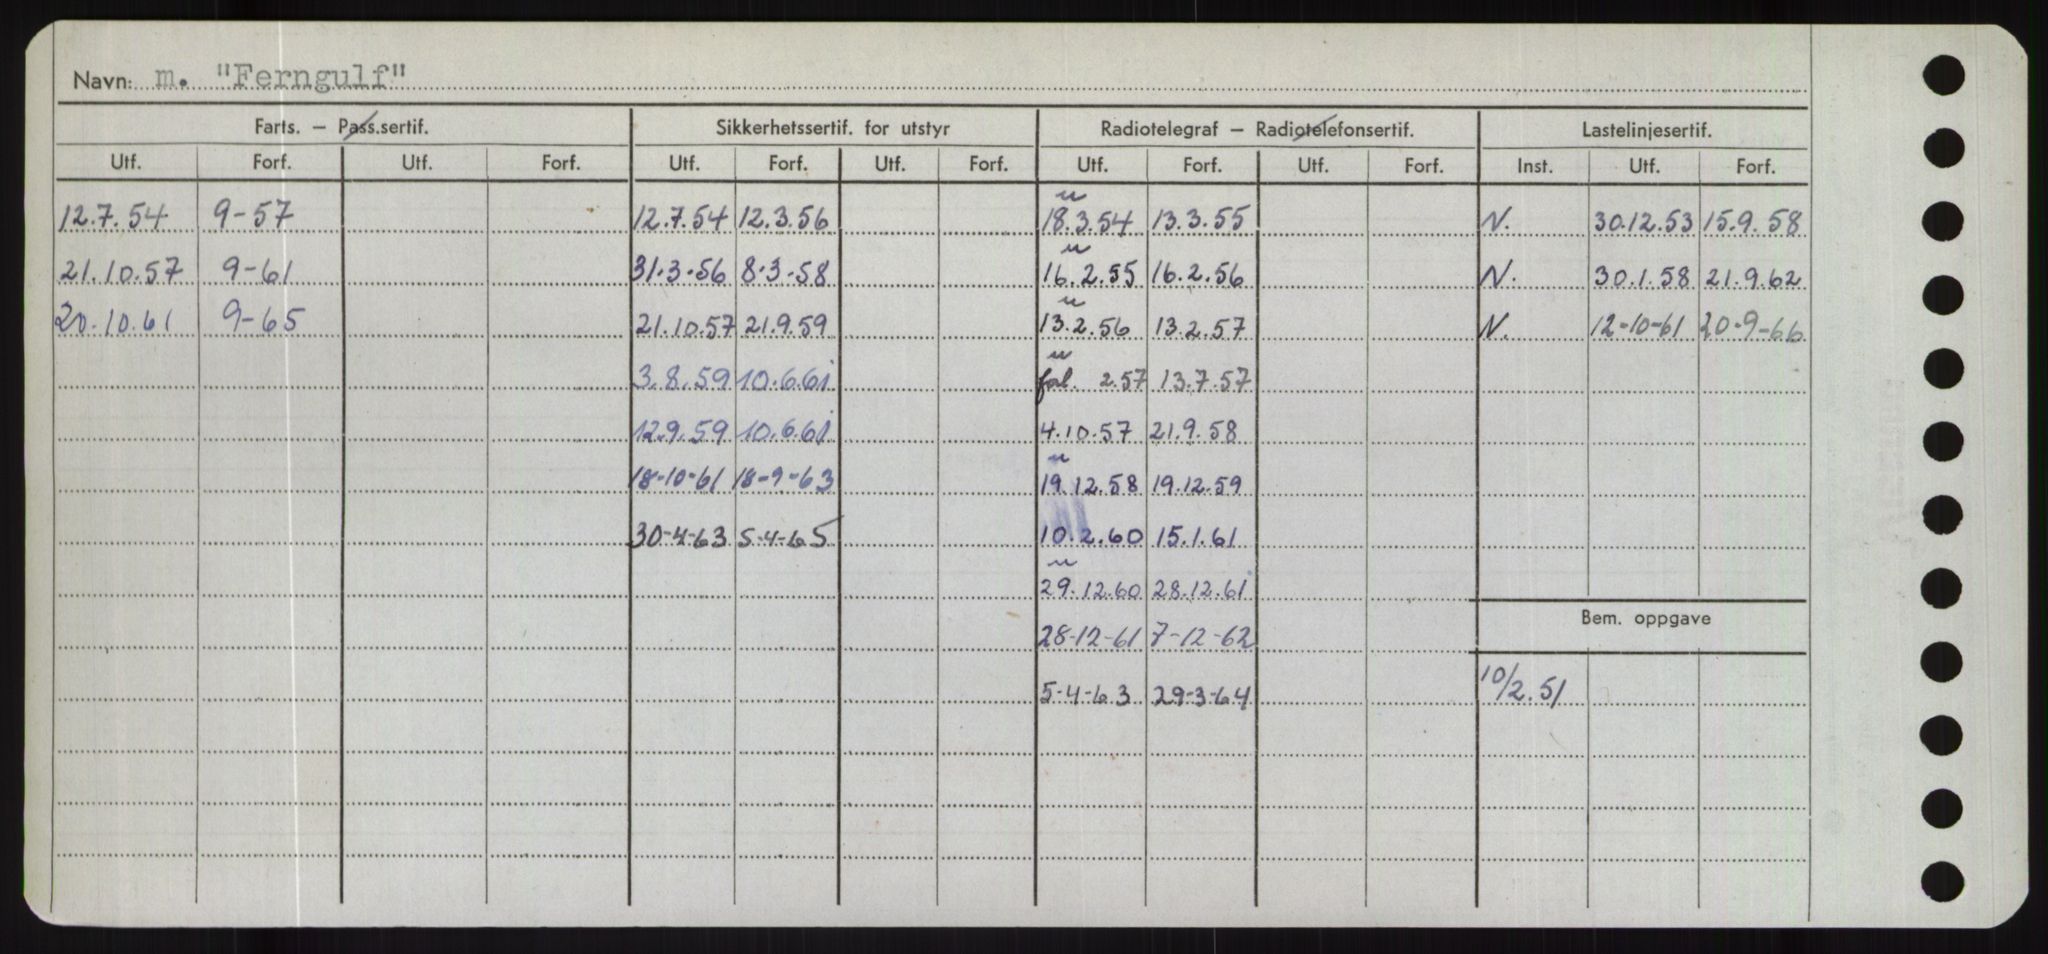 Navn: m. "Ferngulf"
Farts. – Pass.sertif. Sikkerhetssertif. for utstyr Radiotelegraf – Radiotelefonsertif. Lastelinjesertif.
Utf. Forf. Utf. Forf. Utf. Forf. Utf. Forf. Utf. Forf. Utf. Forf. Inst. Utf. Forf.
u
12.7.54 9-57 12.7.54 12.3.56 18.3.54 13.3.55 N. 30.12.53 15.9.58
u
21.10.57 9-61 31.3.56 8.3.58 16.2.55 16.2.56 N. 30.1.58 21.9.62
u
20.10.61 9-65 21.10.57 21.9.59 13.2.56 13.2.57 N. 12-10-61 20-9-66
u
3.8.59 10.6.61 2.57 13.7.57
12.9.59 10.6.61 4.10.57 21.9.58
u
18-10-61 18-9-63 19.12.58 19.12.59
30-4-63 5-4-65 10.2.60 15.1.61
u
29.12.60 28.12.61
Bem. oppgave
28-12-61 7-12-62
5-4-63 29-3-64 10/2.51